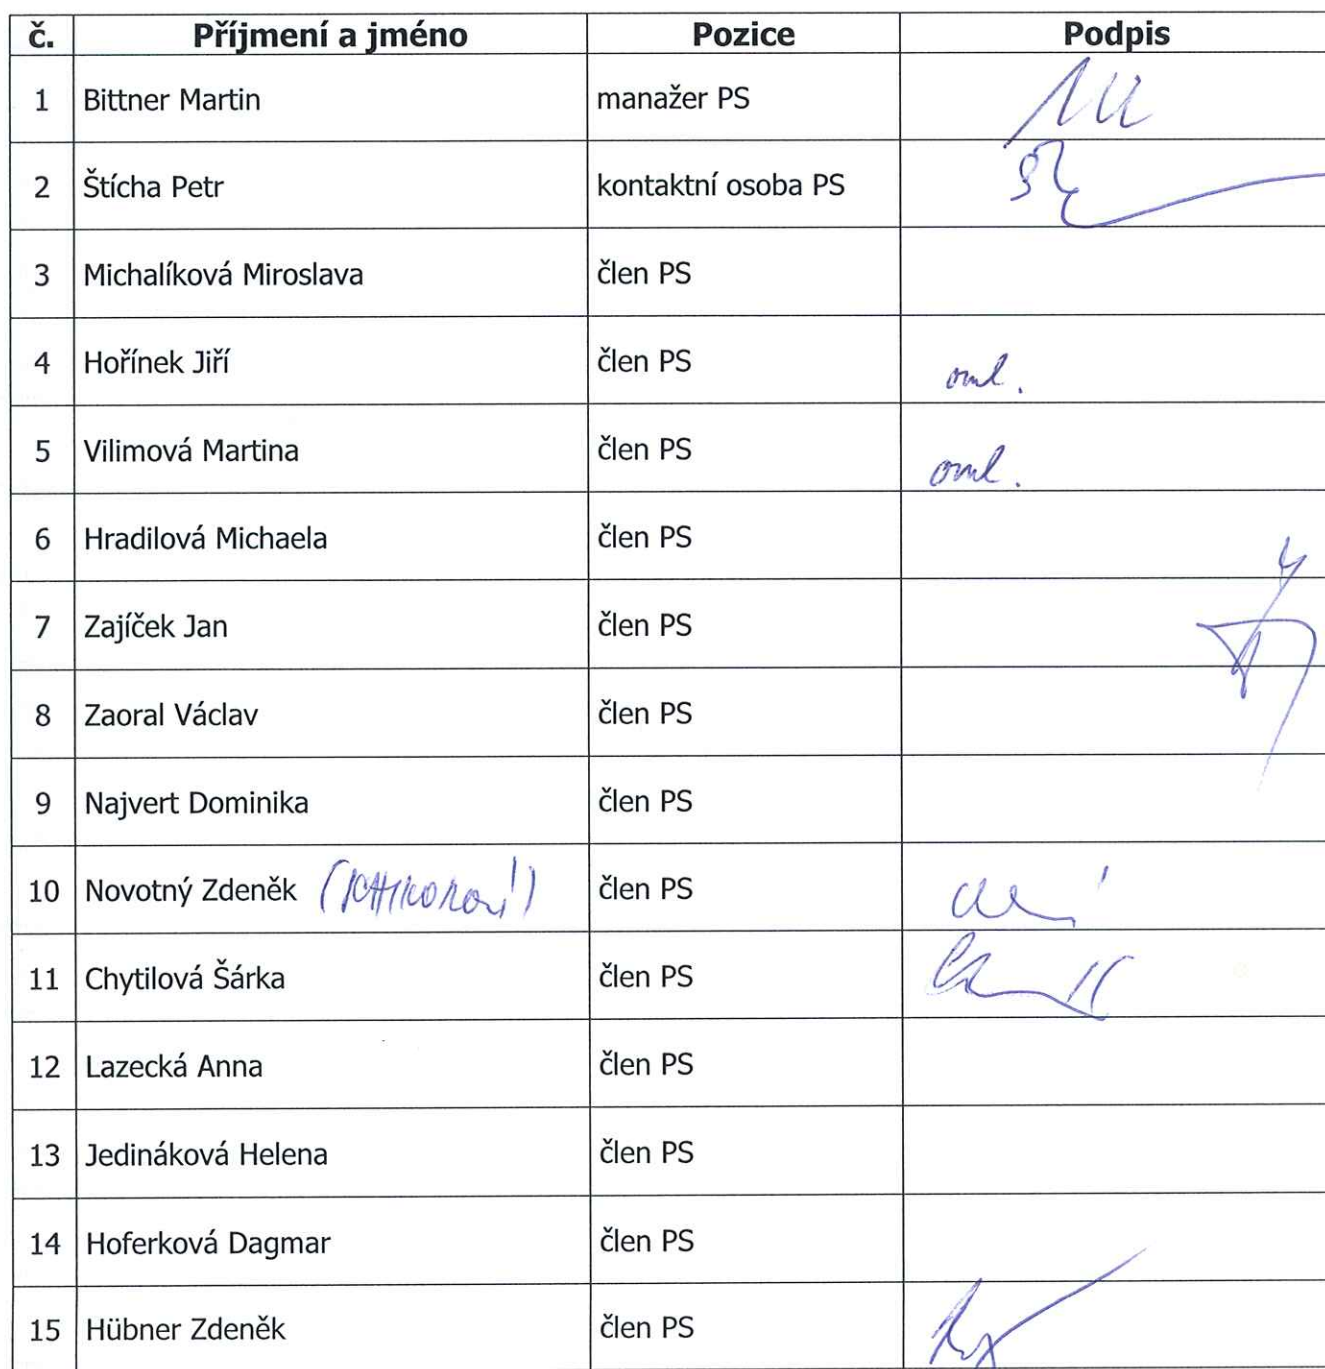 č. Příjmení a jméno Pozice Podpis
1 Bittner Martin manažer PS
2 Štícha Petr kontaktní osoba PS
3 Michalíková Miroslava člen PS
4 Hořínek Jiří člen PS oml.
5 Vilimová Martina člen PS oml.
6 Hradilová Michaela člen PS
7 Zajíček Jan člen PS
8 Zaoral Václav člen PS
9 Najvert Dominika člen PS
10 Novotný Zdeněk člen PS
11 Chytilová Šárka člen PS
12 Lazecká Anna člen PS
13 Jedináková Helena člen PS
14 Hoferková Dagmar člen PS
15 Hübner Zdeněk člen PS